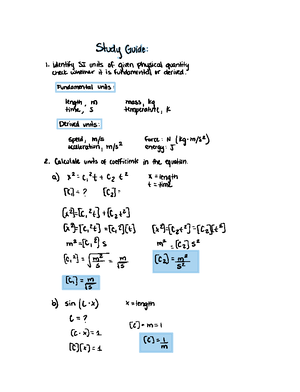 Study Guide:
1. Identify SI units of given physical quantity
check whether it is fundamental or derived.
Fundamental units:
length, m mass, kg
time, s temperature, K
Derived units:
speed, m/s force: N (kg·m/s²)
acceleration, m/s² energy: J
2. Calculate units of coefficients in the equation.
a) x² = c₁²t + c₂ t² x = length
t = time
[C₁] = ? [C₂] =
[x²] = [c₁²t] + [c₂t²]
[x²] = [c₁²t] = [c₁²][t] [x²] = [c₂t²] = [c₂][t²]
m² = [c₁²] s m² = [c₂] s²
[c₁²] = √m²/s = m/√s [c₂] = m²/s²
[c₁] = m/√s
b) sin (c·x) x = length
c = ?
[c·x] = 1 [c]·m = 1
[c][x] = 1 [c] = 1/m